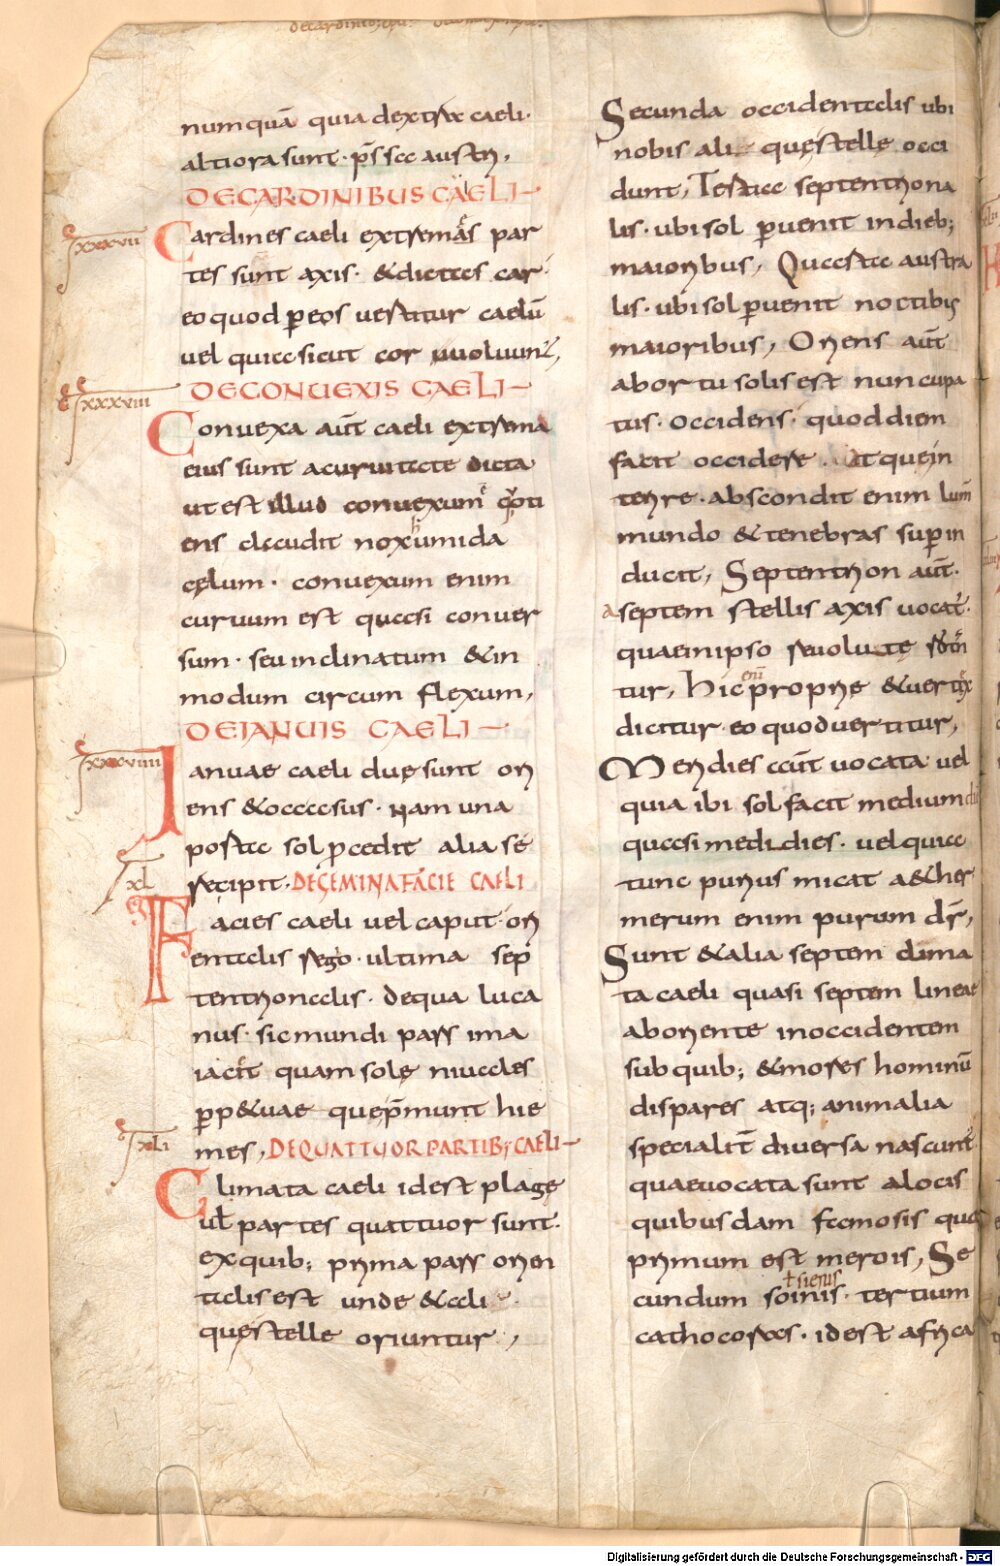 numquā quia dextrae caeli·
altiora sunt· p̄s sic austri,
DE CARDINIBUS CAELI
xxxvii
Cardines caeli extremas par
tes sunt axis· & dictae car
eo quod per eos uertitur caelū
uel quia sicut cor uuoluunt,
DE CONUEXIS CAELI
xxxviii
Conuexa aūt caeli extrema
eius sunt a curuitate dicta
ut est illud conuexum quoti
ens claudit nox umida
cęlum· conuexum enim
curuum est quasi conuer
sum· seu inclinatum & in
modum circum flexum,
DE IANUIS CAELI
xxxviiii
Ianuae caeli duę sunt ori
ens & occasus· nam una
postae sol pcedit alia se
recipit· DE GEMINA FACIE CAELI
xl
Facies caeli uel caput ori
entalis rego· ultima sep
tentrionalis· de qua luca
nus· sic mundi pars ima
iacet quam sole niuales
perp&uae quę p̄munt hie
mes, DE QUATTUOR PARTIB; CAELI
xli
Climata caeli id est plage
uł partes quattuor sunt·
ex quib; prima pars orien
talis est unde & ali
quę stelle oriuntur,
Secunda occidentalis ubi
nobis ali quę stelle occi
dunt, Tertia septentriona
lis· ubi sol peruenit in dieb;
maioribus, Quarta austra
lis· ubi sol peruenit noctibus
maioribus, Oriens aūt
ab ortu solis est nuncupa
tus· Occidens· quod diem
facit occidere at que in
terire· abscondit enim lum
mundo & tenebras superin
ducit, Septentrion aūt·
a septem stellis axis uocat·
quae in ipso reuolutę
tur, Hic enī proprię & uertix
dicitur eo quod uertitur,
Meridies aūt uocata uel
quia ibi sol facit medium
quasi medidies· uel quia
tunc purius micat a&her
merum enim purum dr̄,
Sunt & alia septem clima
ta caeli quasi septem lineae
ab oriente in occidentem
sub quib; & mores hominū
dispares atq; animalia
specialit̄ diuersa nascunt
quae uocata sunt a locis
quibusdam famosis quo
primum est merois, Se
sienis
cundum soinis· tertium
cathocoras· id est africa
Digitalisierung gefördert durch die Deutsche Forschungsgemeinschaft - DFG